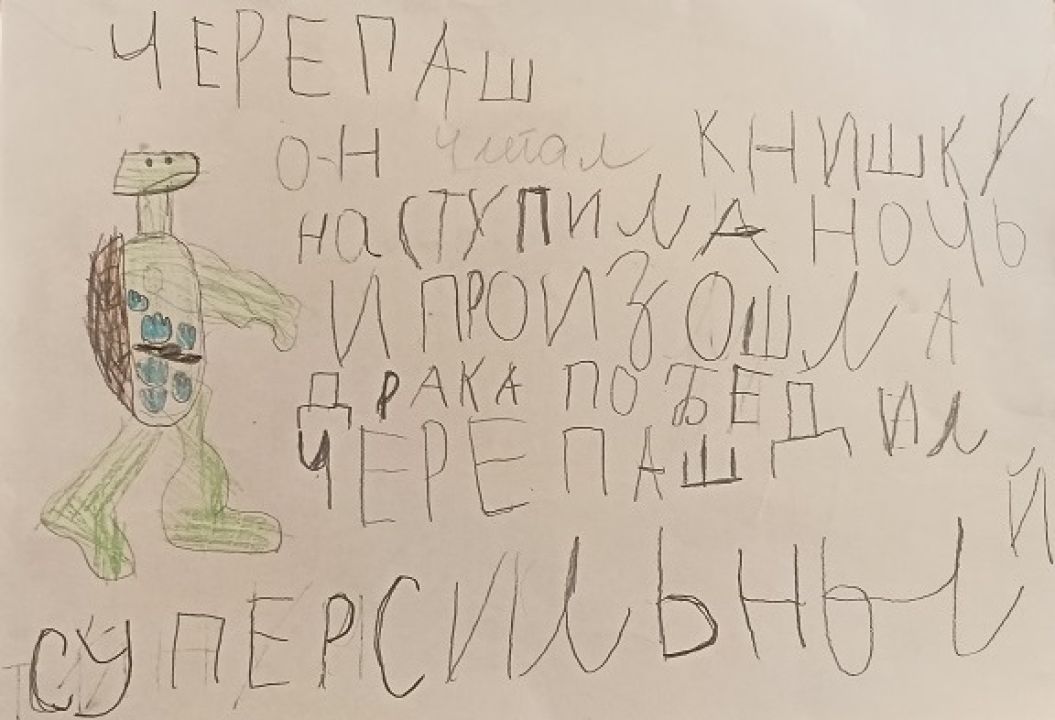 ЧЕРЕПАШ
ОН читал КНИШКУ
наСТУПИЛА НОЧЬ
И ПРОИЗОШЛА
ДРАКА ПОБЕДИЛ
ЧЕРЕПАШ
СУПЕРСИЛЬНЫЙ